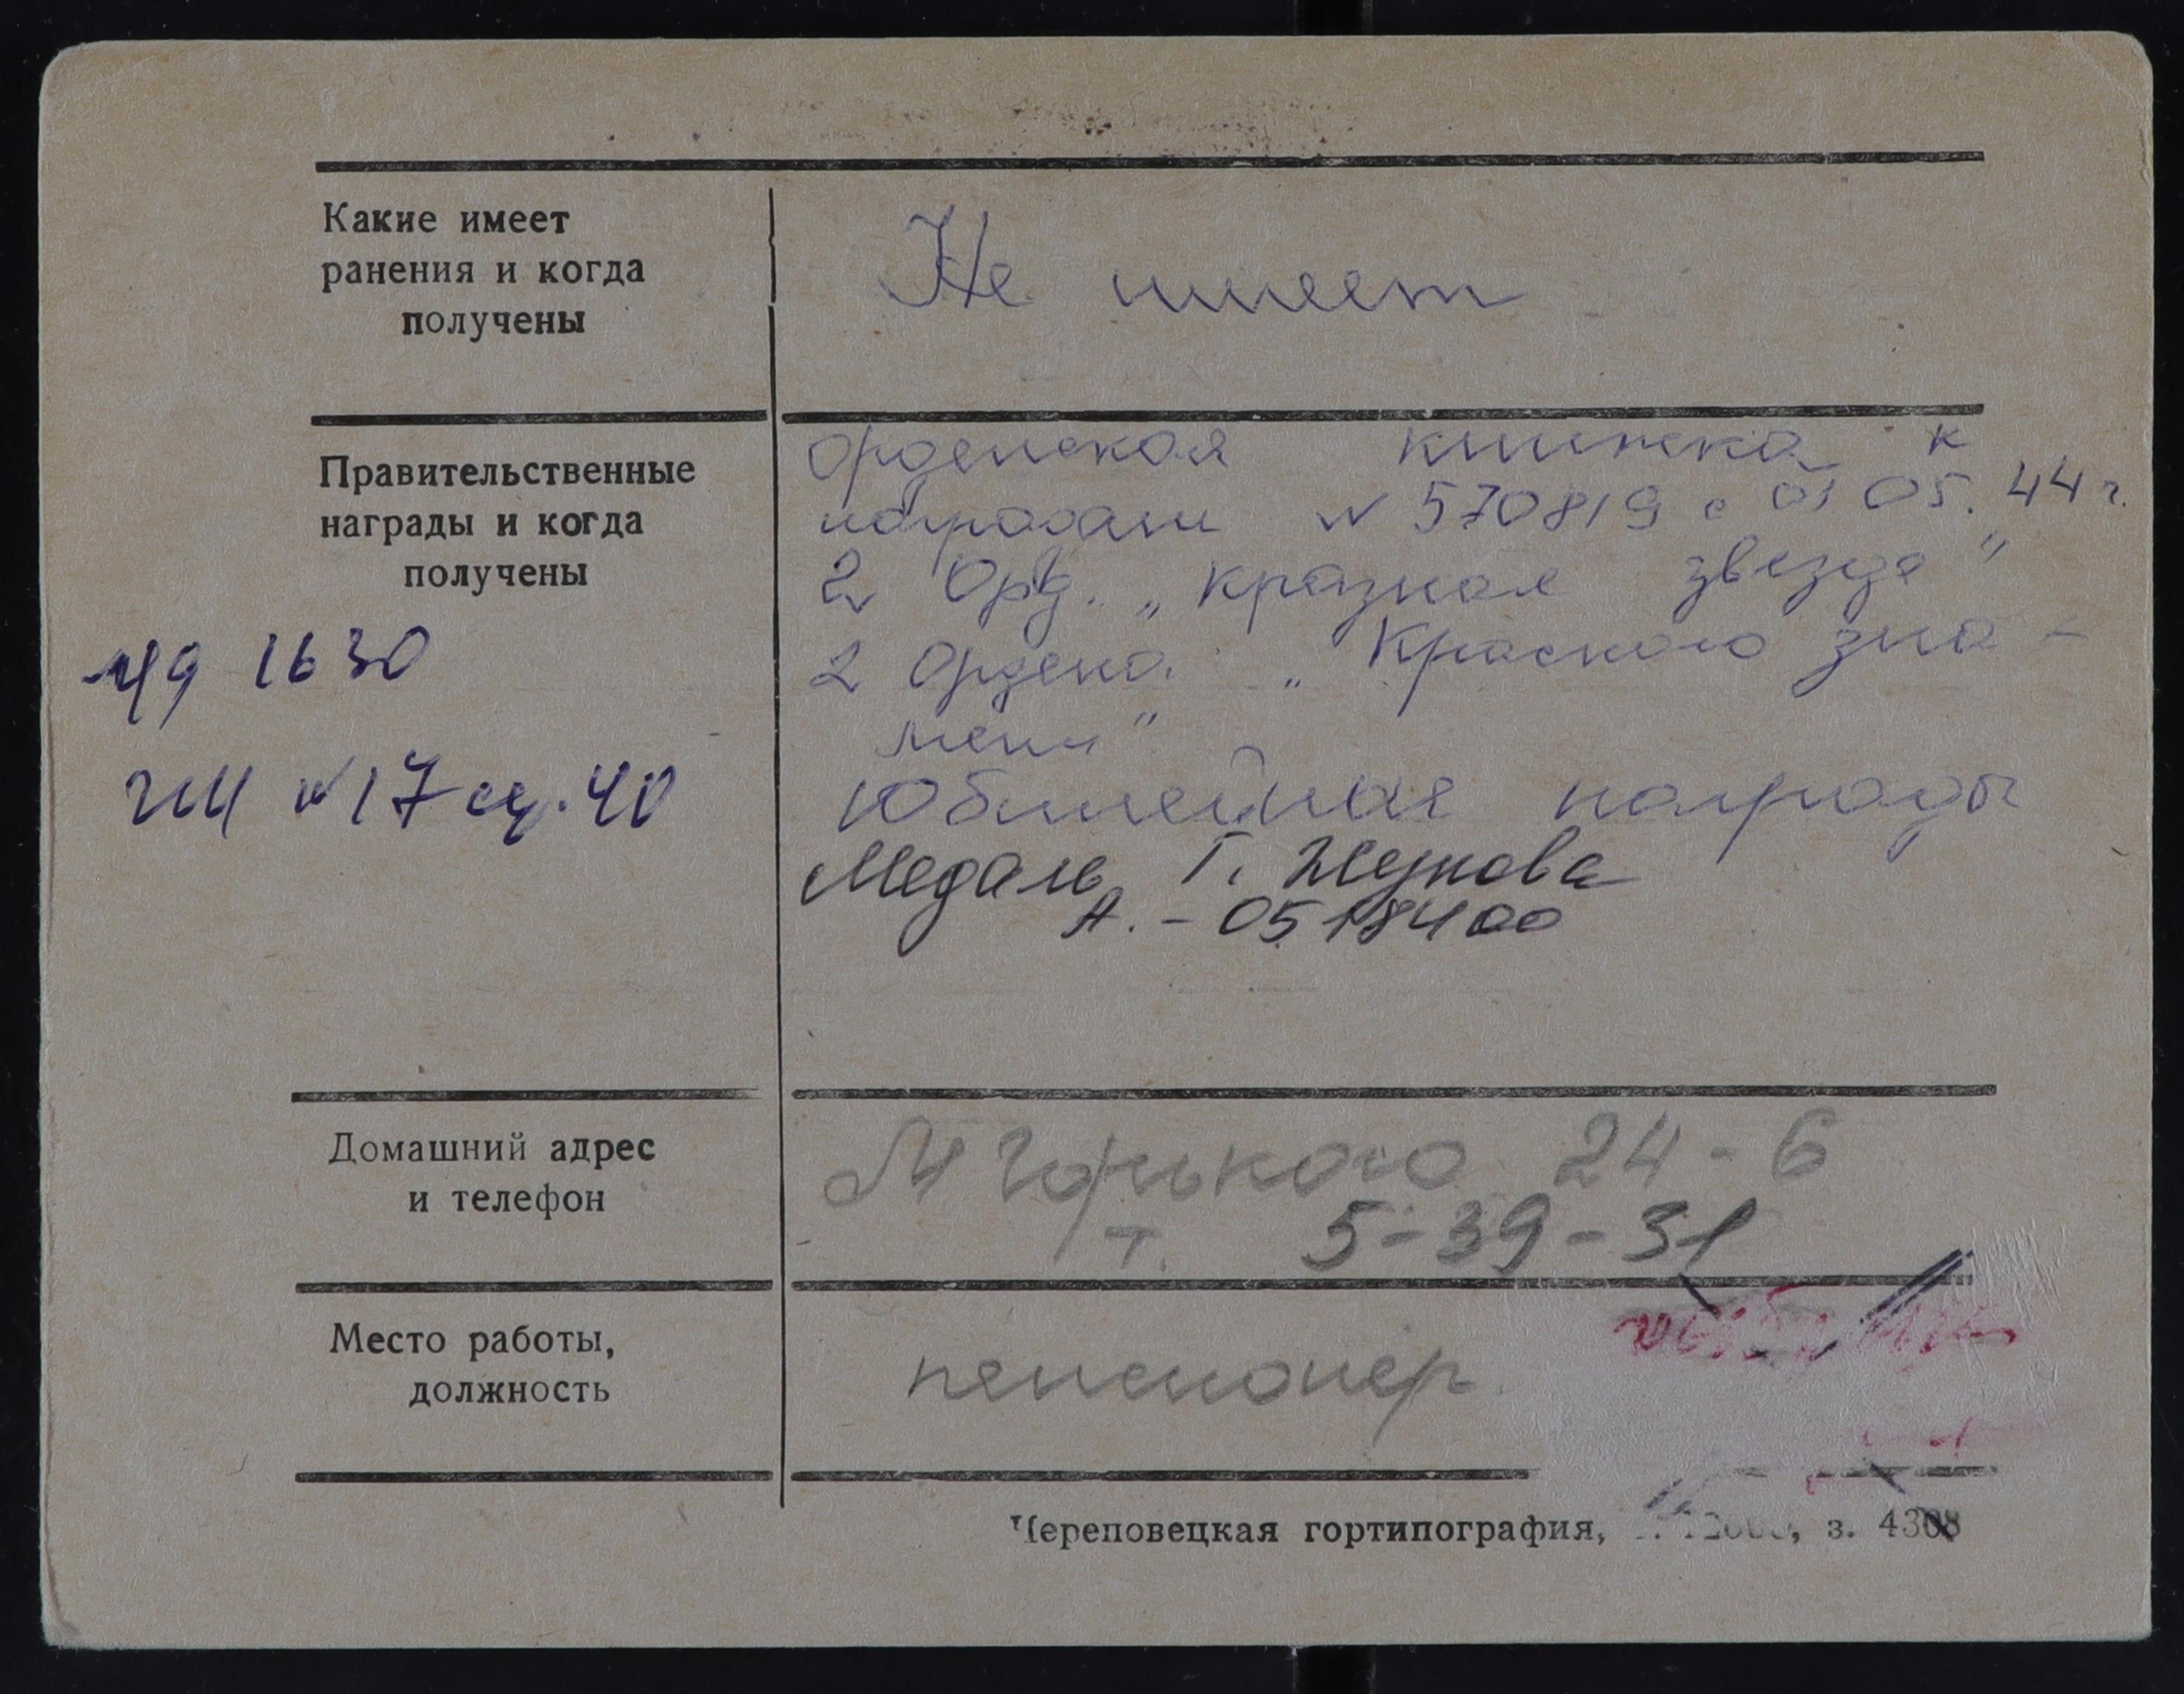 Какие имеет
ранения и когда
получены
Не имеет
Правительственные
награды и когда
получены
орденская книжка к
наградам № 570819 с 01 05. 44 г.
2 Орд. „Красная звезда"
2 Ордена „Красного зна-
мени"
Юбилейные награды
Медаль Г. Жукова
А. - 0518400
1630
№ 17 40
Домашний адрес
и телефон
М Горького 24 - 6
т. 5-39-31
Место работы,
должность
пенсионер
Череповецкая гортипография, з. 4308